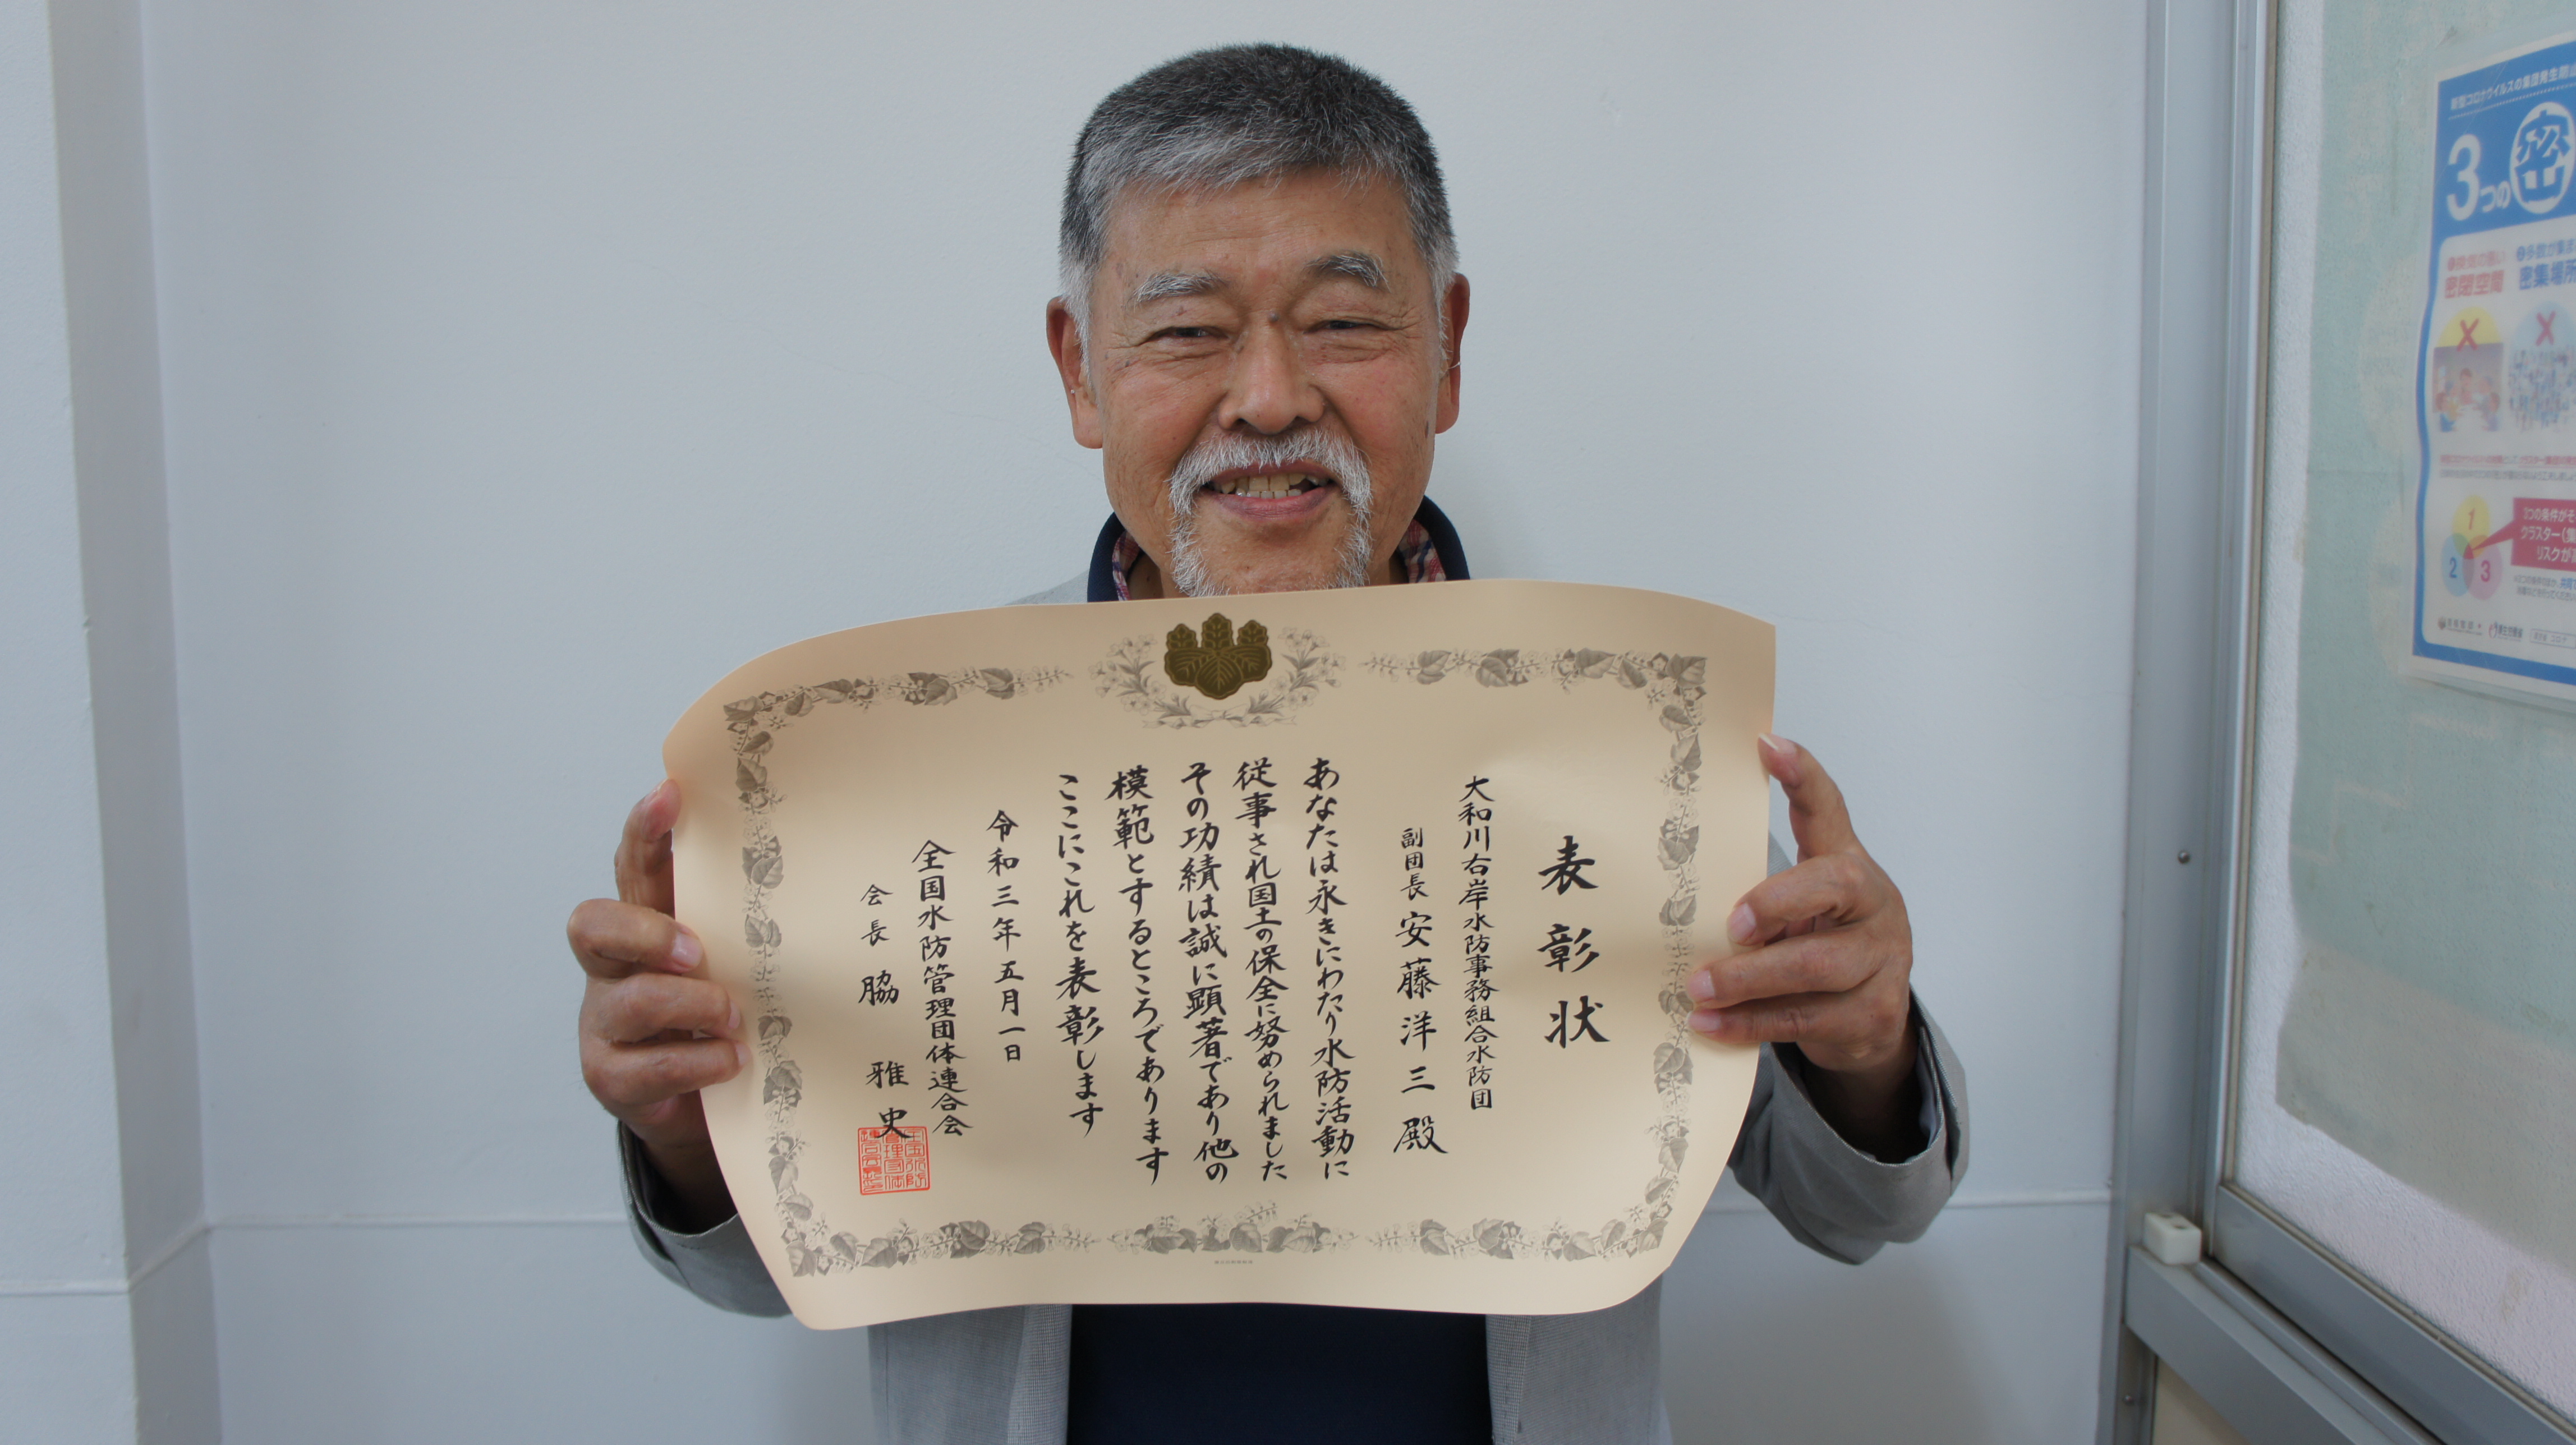 表彰状
大和川右岸水防事務組合水防団
副団長 安藤洋三殿
あなたは永きにわたり水防活動に
従事され国土の保全に努められました
その功績は誠に顕著であり他の
模範とするところであります
ここにこれを表彰します
令和三年五月一日
全国水防管理団体連合会
会長 脇 雅史
新型コロナウイルスの集団発生防止
3つの密
①換気の悪い
密閉空間
②多数が集ま
密集場所
1
2
3
3つの条件がそ
クラスター(集
リスクが高